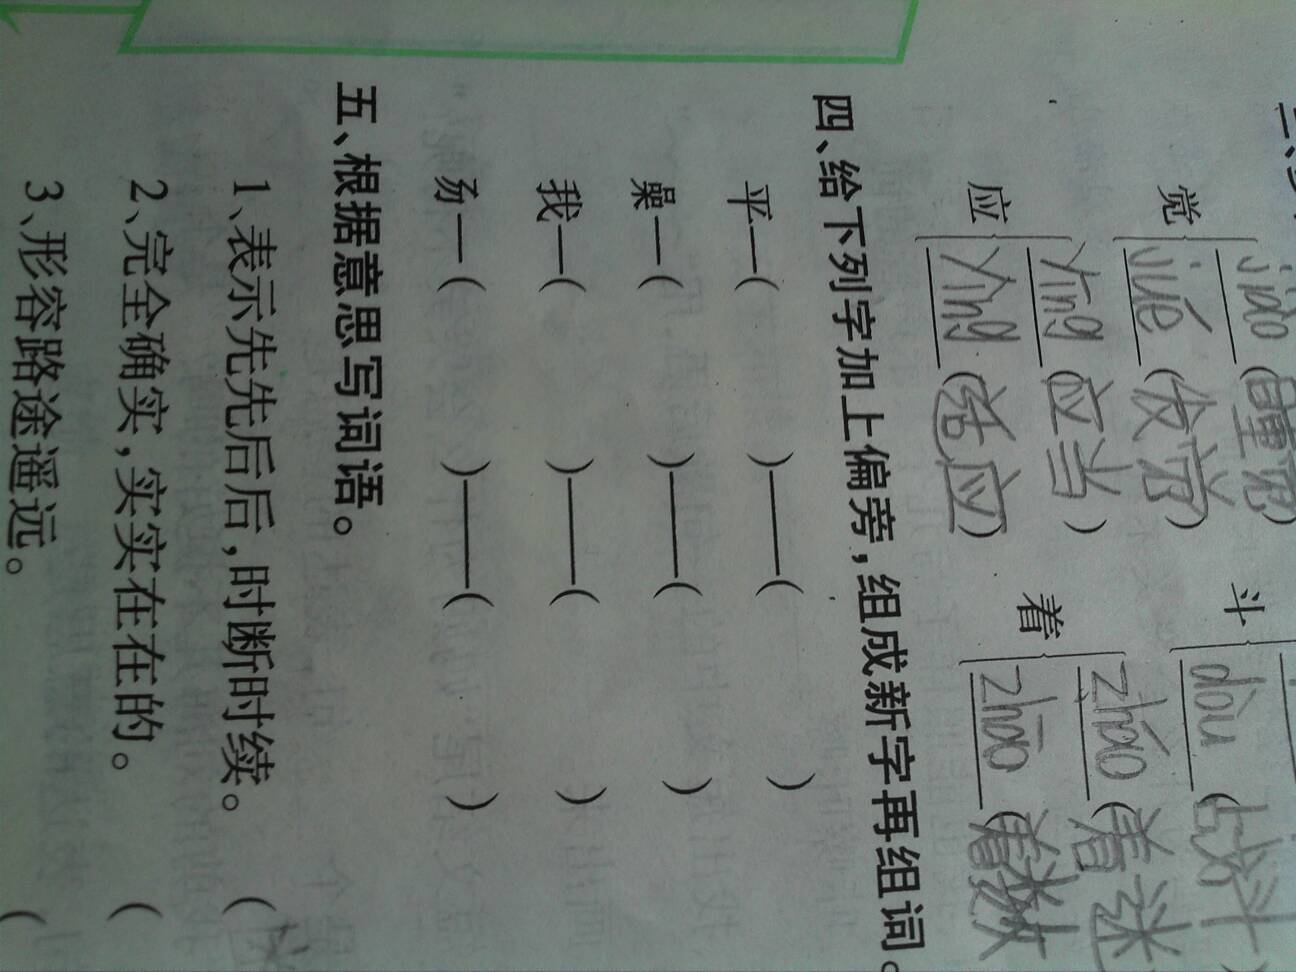 觉 jiào (睡觉)
jué (发觉)
斗
dòu (战斗)
应 yīng (应当)
yìng (适应)
着 zháo (着迷)
zhāo (着数
四、给下列字加上偏旁,组成新字再组词。
平—( )——( )
喿—( )——( )
我—( )——( )
昜—( )——( )
五、根据意思写词语。
1、表示先先后后,时断时续。 (
2、完全确实,实实在在的。 (
3、形容路途遥远。 (